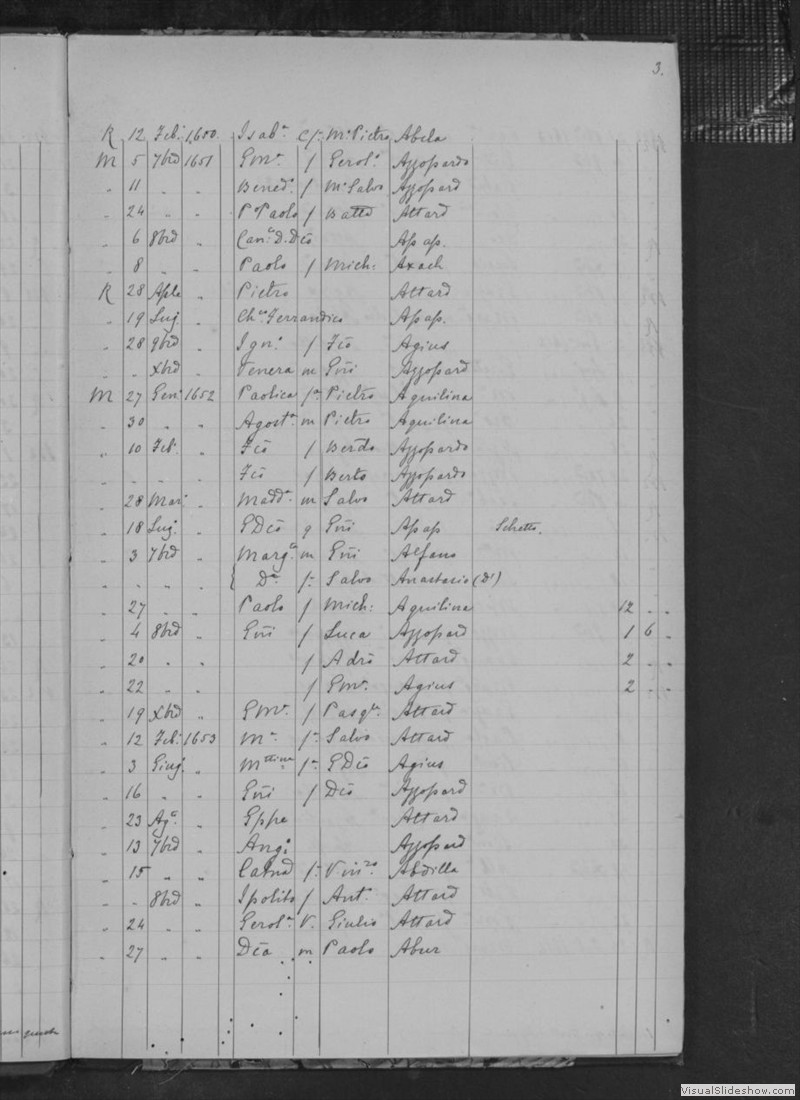 3.
R 12 Feb. 1,600. Isab.a f.a M.o Pietro Abela
M 5 7brē 1651 Gio M.a / Gerol.o Azzopardo
" 11 " " Bened.o / M.o Salvo Azzopard
" 24 " " P.o Paolo / Batta Attard
" 6 8brē " Can.o D. Dco Apap.
" 8 " " Paolo / Mich: Axach
R 28 Aple " Pietro Attard
" 19 Lug " Ch.co Ferrandico Apap.
" 28 9brē " Ign.o / Fco Agius
" " Xbrē " Venera m Gni Azzopard
M 27 Gen: 1652 Paolica f.a Pietro Aquilina
" 30 " " Agost.a m Pietro Aquilina
" 10 Feb. " Fco / Berdo Azzopardo
" " " Fco / Berto Azzopardo
" 28 Mar: " Madd.a m Salvo Attard
" 18 Lug. " q Gni Apap Schetto.
" 3 7brē " Marg.ta m Gni Alfano
" " " " { D.a f.a Salvo Anastasio (D')
" 27 " " Paolo / Mich: Aquilina 12 . .
" 4 8brē " Gni / Luca Azzopard 1 6 .
" 20 " " / Adrō Attard 2 . .
" 22 " " / Attard Agius 2 . .
" 19 Xbrē " / Pasq.le Attard
" 12 Feb. 1653 M.a f.a Salvo Attard
" 3 Giug. " f.a Agius
" 16 " " Gni / Dco Azzopard
" 23 Ag.o " Gppe Attard
" 13 7brē " Ang.o Azzopard
" 15 " " Catnā f.a Vin.zo Abdilla
" " 8brē " Ipolito / Ant.o Attard
" 24 " " Gerol.a V. Giulio Attard
" 27 " " Dca m Paolo Abur
VisualSlideshow.com